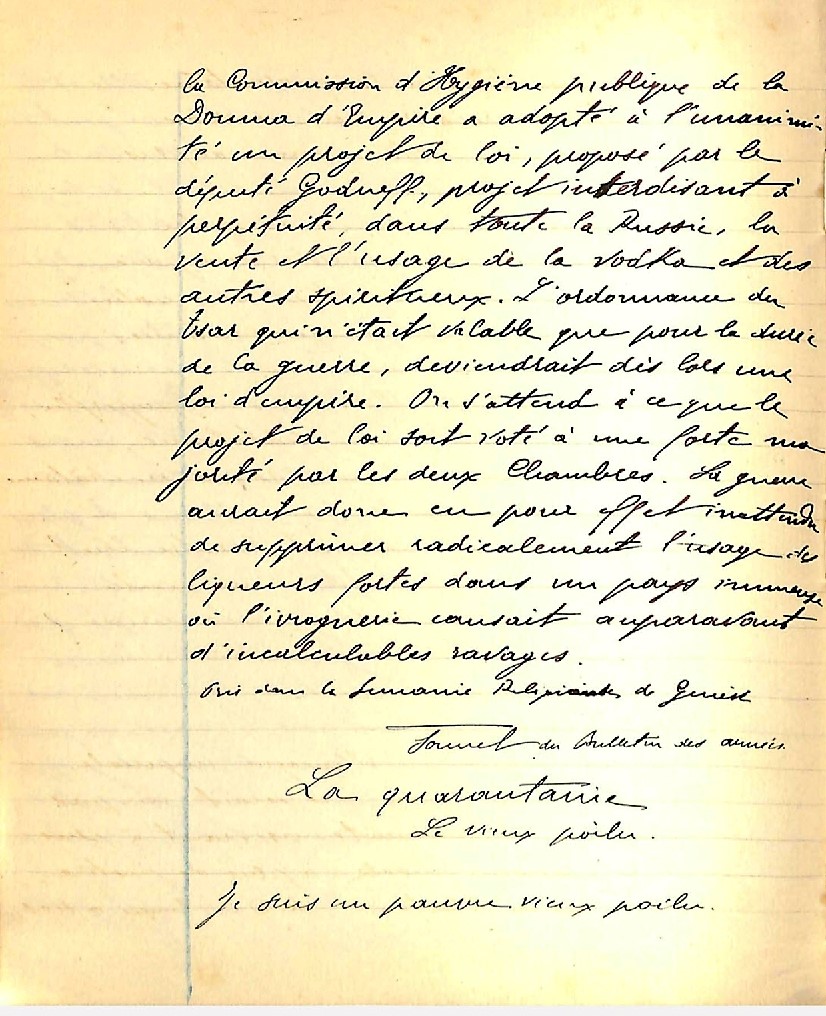 la Commission d'Hygiène publique de la
Douma d'Empire a adopté à l'unanimi-
té un projet de loi, proposé par le
député Godneff, projet interdisant à
perpétuité, dans toute la Russie, la
vente et l'usage de la vodka et des
autres spiritueux. L'ordonnance du
tsar qui n'était valable que pour la durée
de la guerre, deviendrait dès lors une
loi d'empire. On s'attend à ce que le
projet de loi soit voté à une forte ma
jorité par les deux Chambres. La guerre
aurait donc eu pour effet inattendu
de supprimer radicalement l'usage des
liqueurs fortes dans un pays immense
où l'ivrognerie causait auparavant
d'incalculables ravages.
Pris dans la Semaine Religieuse de Genève
Sonnet du Bulletin des armées
La quarantaine
Le vieux poilu.
Je suis un pauvre vieux poilu.